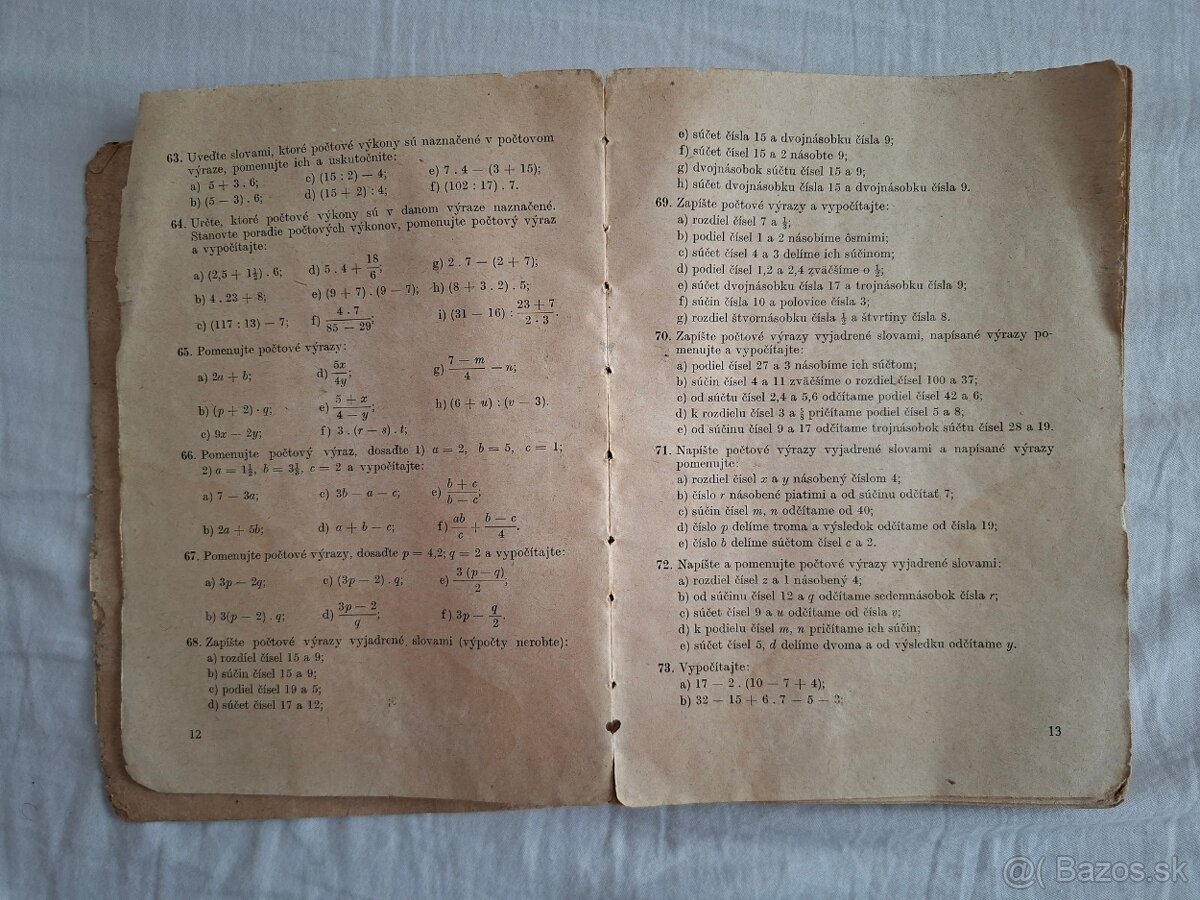 63. Uveďte slovami, ktoré počtové výkony sú naznačené v počtovom
výraze, pomenujte ich a uskutočnite:
a) 5 + 3 . 6; c) (15 : 2) — 4; e) 7 . 4 — (3 + 15);
b) (5 — 3) . 6; d) (15 + 2) : 4; f) (102 : 17) . 7.
64. Určte, ktoré počtové výkony sú v danom výraze naznačené.
Stanovte poradie počtových výkonov, pomenujte počtový výraz
a vypočítajte:
a) (2,5 + 1½) . 6; d) 5 . 4 + 18/6; g) 2 . 7 — (2 + 7);
b) 4 . 23 + 8; e) (9 + 7) . (9 — 7); h) (8 + 3 . 2) . 5;
c) (117 : 13) — 7; f) 4 . 7/85 — 29; i) (31 — 16) : 23 + 7/2 . 3.
65. Pomenujte počtové výrazy:
a) 2a + b; d) 5x/4y; g) 7 — m/4 — n;
b) (p + 2) . q; e) 5 + x/4 — y; h) (6 + u) : (v — 3).
c) 9x — 2y; f) 3 . (r — s) . t;
66. Pomenujte počtový výraz, dosaďte 1) a = 2, b = 5, c = 1;
2) a = 1½, b = 3⅓, c = 2 a vypočítajte:
a) 7 — 3a; c) 3b — a — c; e) b + c/b — c;
b) 2a + 5b; d) a + b — c; f) ab/c + b — c/4.
67. Pomenujte počtové výrazy, dosaďte p = 4,2; q = 2 a vypočítajte:
a) 3p — 2q; c) (3p — 2) . q; e) 3 (p — q)/2;
b) 3(p — 2) . q; d) 3p — 2/q; f) 3p — q/2.
68. Zapíšte počtové výrazy vyjadrené slovami (výpočty nerobte):
a) rozdiel čísel 15 a 9;
b) súčin čísel 15 a 9;
c) podiel čísel 19 a 5;
d) súčet čísel 17 a 12;
12
e) súčet čísla 15 a dvojnásobku čísla 9;
f) súčet čísel 15 a 2 násobte 9;
g) dvojnásobok súčtu čísel 15 a 9;
h) súčet dvojnásobku čísla 15 a dvojnásobku čísla 9.
69. Zapíšte počtové výrazy a vypočítajte:
a) rozdiel čísel 7 a
b) podiel čísel 1 a 2 násobíme ôsmimi;
c) súčet čísel 4 a 3 delíme ich súčinom;
d) podiel čísel 1,2 a 2,4 zväčšíme o ½;
e) súčet dvojnásobku čísla 17 a trojnásobku čísla 9;
f) súčin čísla 10 a polovice čísla 3;
g) rozdiel štvornásobku čísla ½ a štvrtiny čísla 8.
70. Zapíšte počtové výrazy vyjadrené slovami, napísané výrazy po-
menujte a vypočítajte:
a) podiel čísel 27 a 3 násobíme ich súčtom;
b) súčin čísel 4 a 11 zväčšíme o rozdiel čísel 100 a 37;
c) od súčtu čísel 2,4 a 5,6 odčítame podiel čísel 42 a 6;
d) k rozdielu čísel 3 a pričítame podiel čísel 5 a 8;
e) od súčinu čísel 9 a 17 odčítame trojnásobok súčtu čísel 28 a 19.
71. Napíšte počtové výrazy vyjadrené slovami a napísané výrazy
pomenujte:
a) rozdiel čísel x a y násobený číslom 4;
b) číslo r násobené piatimi a od súčinu odčítať 7;
c) súčin čísel m, n odčítame od 40;
d) číslo p delíme troma a výsledok odčítame od čísla 19;
e) číslo b delíme súčtom čísel c a 2.
72. Napíšte a pomenujte počtové výrazy vyjadrené slovami:
a) rozdiel čísel z a 1 násobený 4;
b) od súčinu čísel 12 a q odčítame sedemnásobok čísla r;
c) súčet čísel 9 a u odčítame od čísla v;
d) k podielu čísel m, n pričítame ich súčin;
e) súčet čísel 5, d delíme dvoma a od výsledku odčítame y.
73. Vypočítajte:
a) 17 — 2 . (10 — 7 + 4);
b) 32 — 15 + 6 . 7 — 5 — 3;
13
@( Bazos.sk